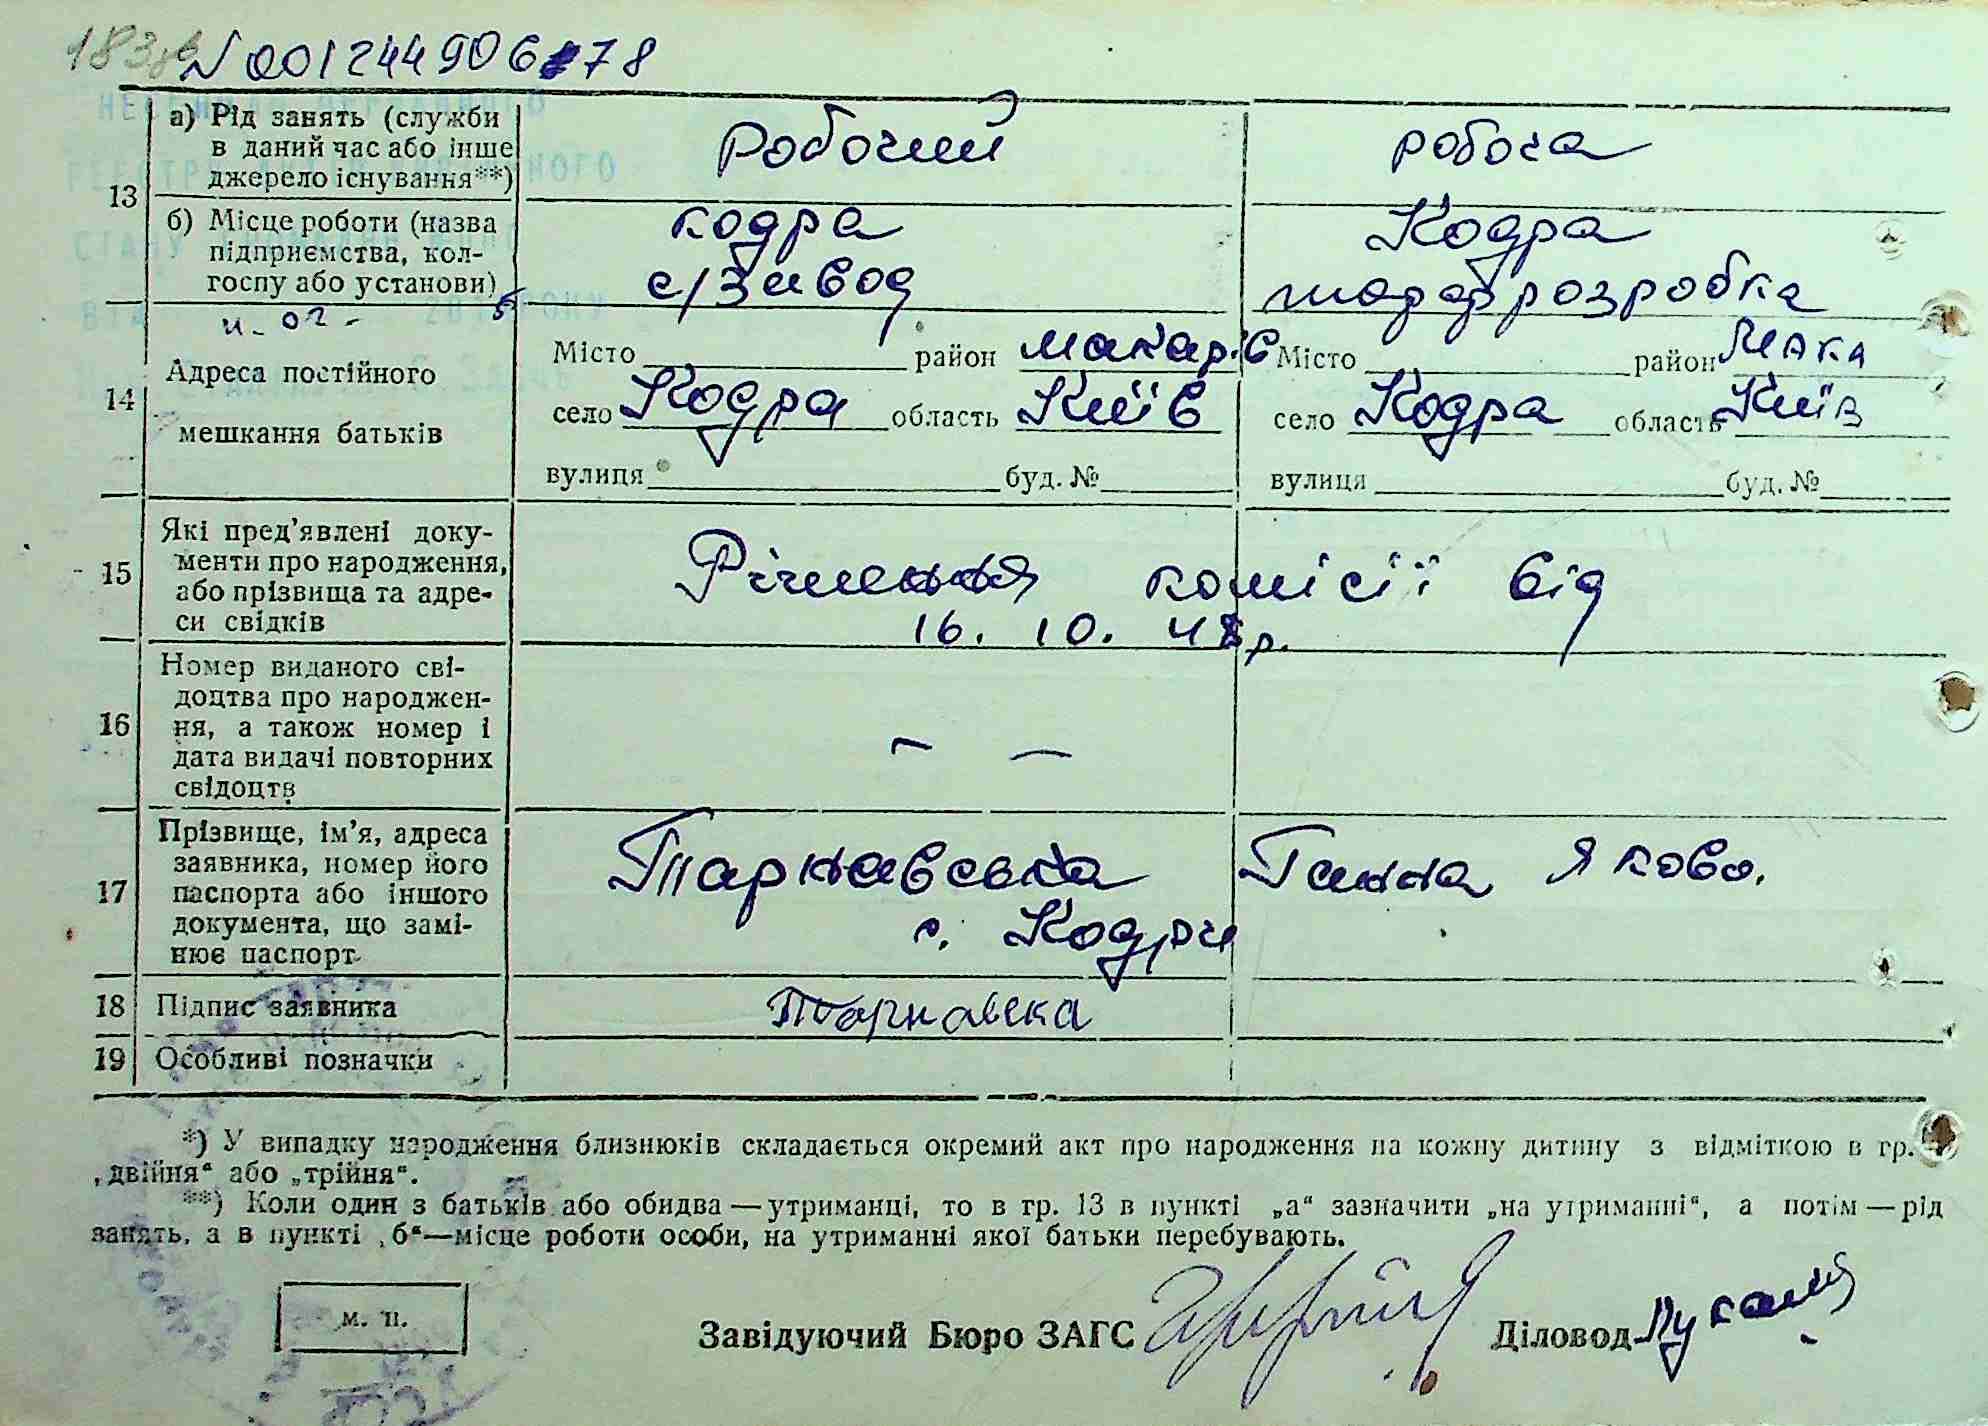 183зв N 00124490678
13
а) Рід занять (служби в даний час або інше джерело існування**)
Робочий
робоча
б) Місце роботи (назва підприємства, колгоспу або установи)
кодра
с/завод
Кодра
торфрозробка
14
Адреса постійного мешкання батьків
Місто район Макар.в
село Кодра область Київ
вулиця буд. №
Місто район Мака
село Кодра область Київ
вулиця буд. №
15
Які пред'явлені документи про народження, або прізвища та адреси свідків
Рішення комісії від
16. 10. 48 р.
16
Номер виданого свідоцтва про народження, а також номер і дата видачі повторних свідоцтв
— —
17
Прізвище, ім'я, адреса заявника, номер його паспорта або іншого документа, що замінює паспорт
Тарнавська Ганна Яково.
с. Кодра
18 Підпис заявника
Тарнавска
19 Особливі позначки
*) У випадку народження близнюків складається окремий акт про народження на кожну дитину з відміткою в гр.
„двійня“ або „трійня“.
**) Коли один з батьків або обидва — утриманці, то в гр. 13 в пункті „а“ зазначити „на утриманні“, а потім — рід
занять, а в пункті „б“—місце роботи особи, на утриманні якої батьки перебувають.
м. п.
Завідуючий Бюро ЗАГС
Діловод